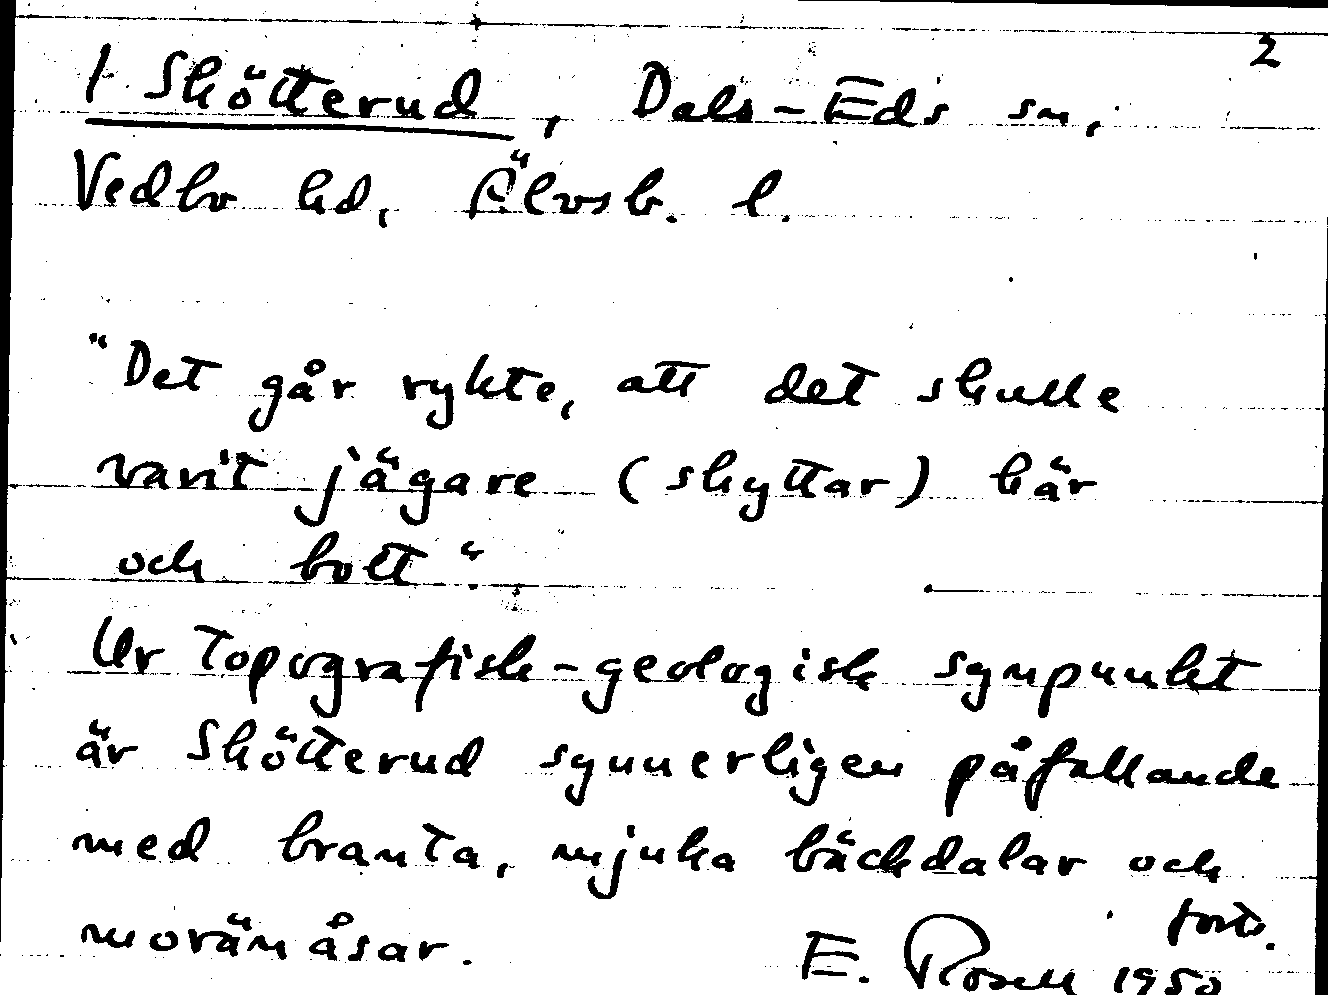 2
1 Skötterud, Dals-Eds sn,
Vedbo hd, Älvsb. l.
"Det går rykte, att det skulle
varit jägare (skyttar) här
och bott".
Ur topografisk-geologisk synpunkt
är Skötterud synnerligen påfallande
med branta, mjuka bäckdalar och
moränåsar.
forts.
E. Rosell 1950